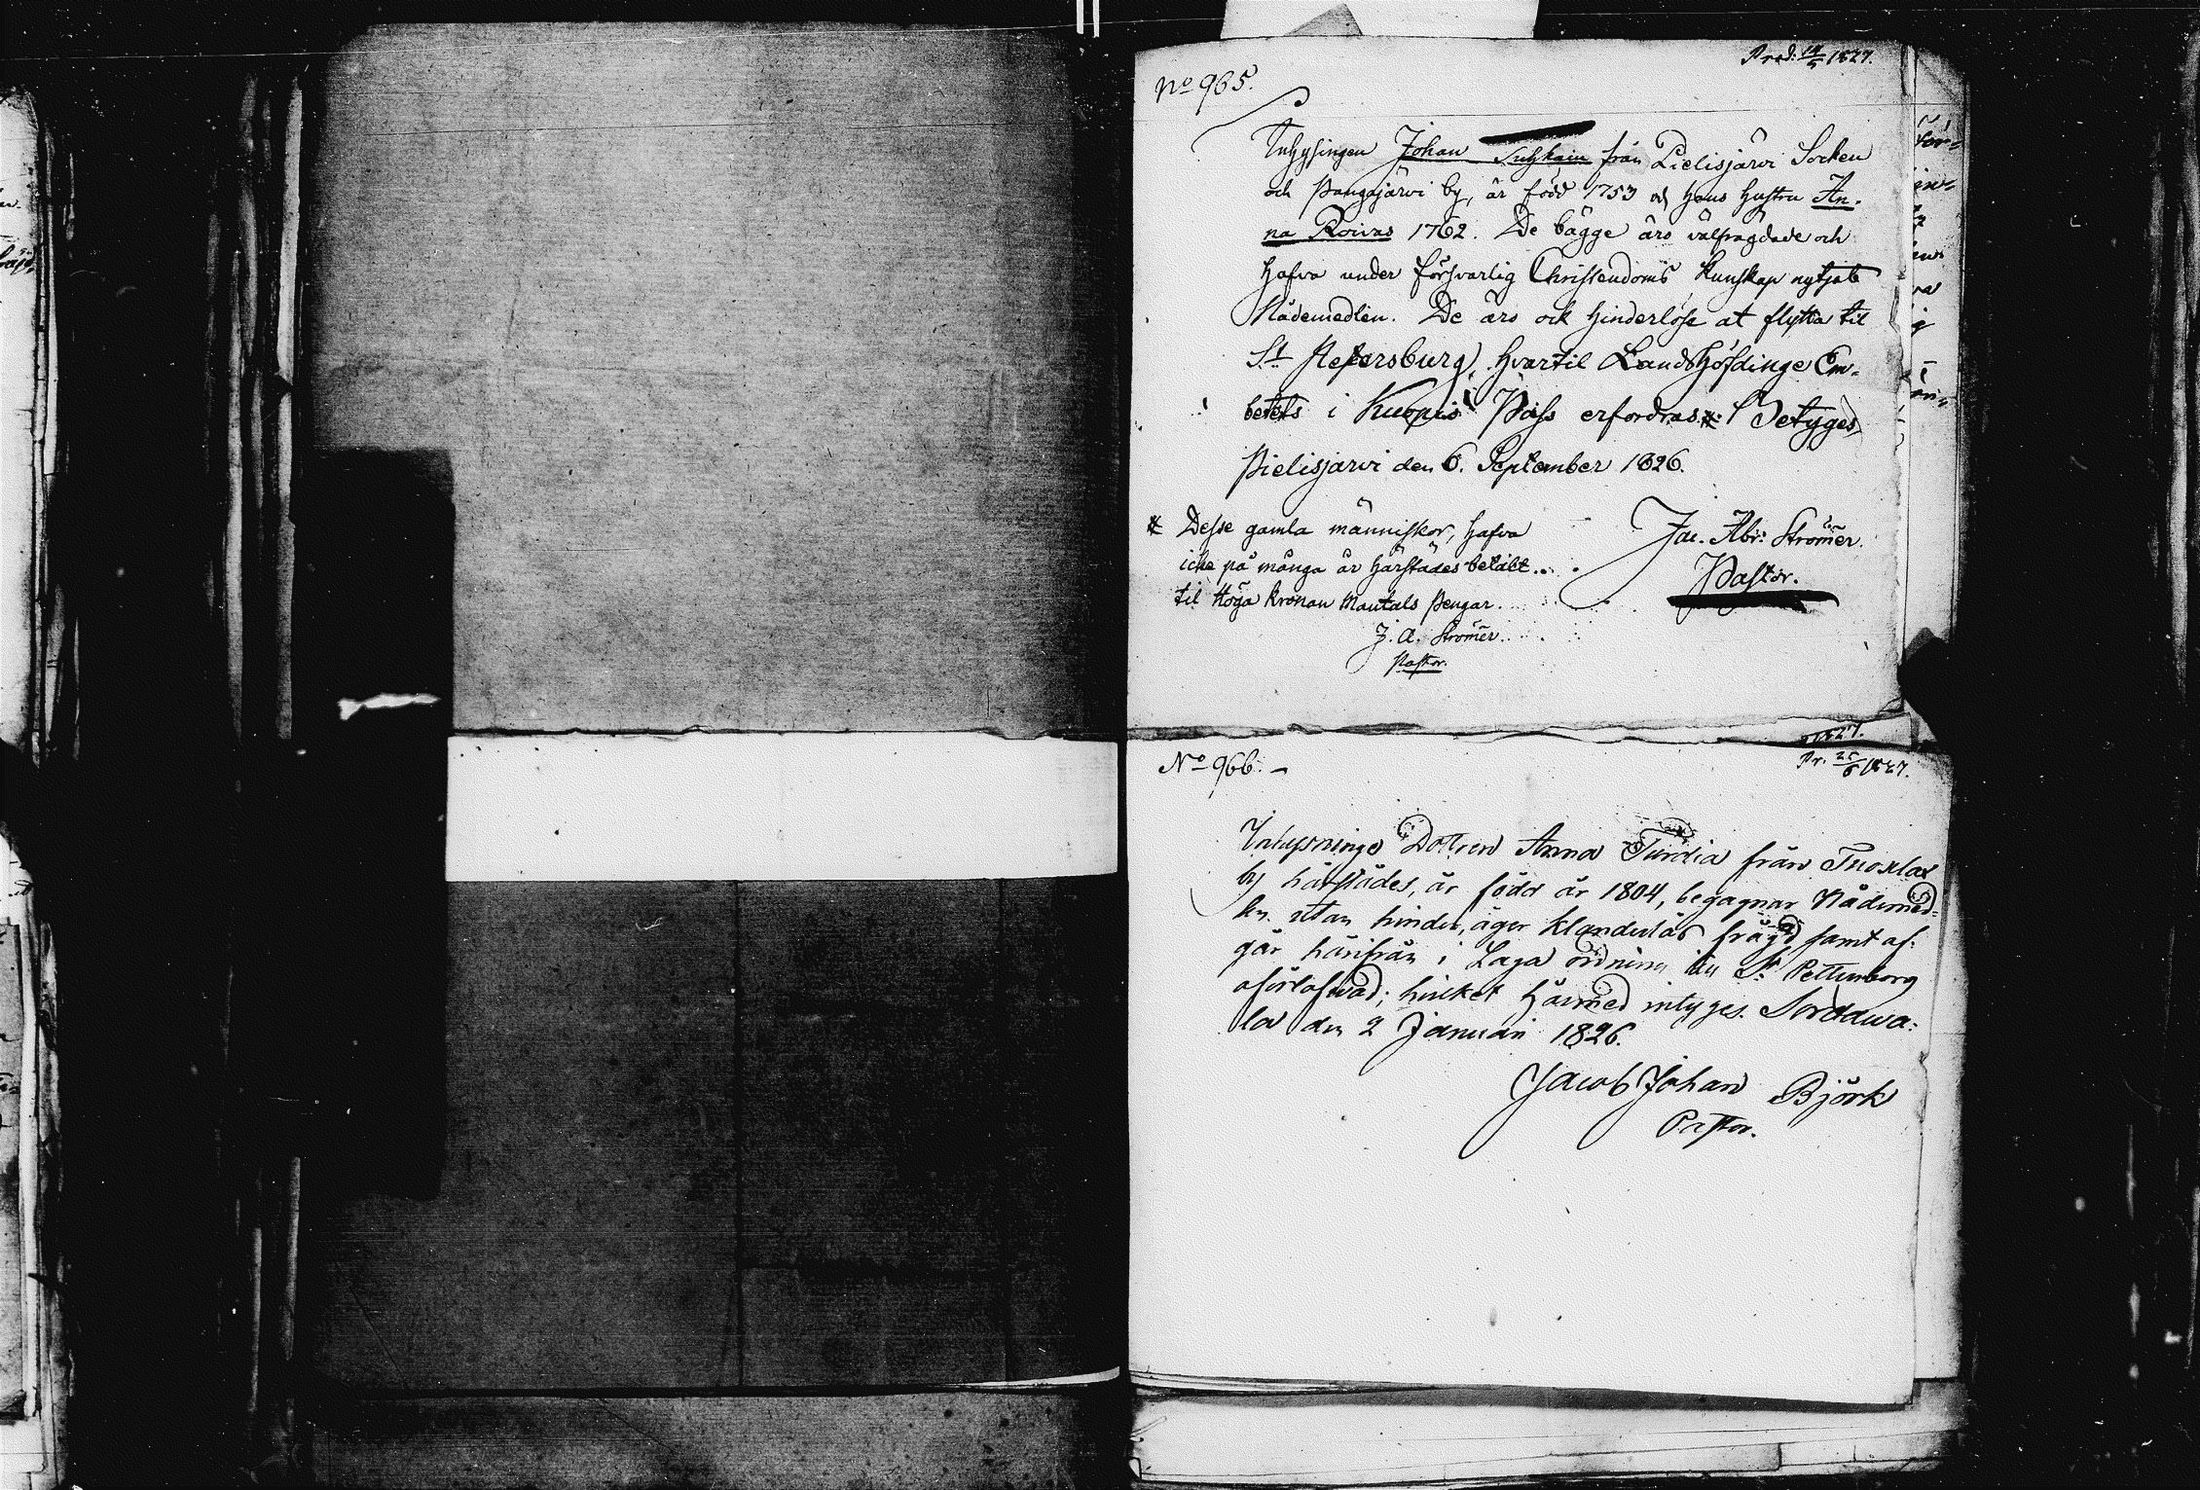 Nº 965.
Prod: 14/5 1827.
Inhysingen Johan from Pielisjärvi Socken
och Pangajärvi by, är född 1753 och hans hustru An-
na Roivas 1762. De bägge äro välfrägdade och
hafva under försvarlig Christendoms Kunskap nytjat
Nådemedlen. De äro ock hinderlöse at flytta til
St Petersburg, hvartil Landshöfdinge Em-
betets i Kuopio Pass erfordras * Betyges,
Pielisjärvi den 6. September 1826.
Jac. Abr: Strömer.
Pastor.
* Desse gamla människor, hafva
icke på många år härstädes betalt
til Höga Kronan Mantals Pengar.
J. A. Strömer.
Pastor.
1827.
Nº 966.
Pr. 25/6 1827.
Inhysninge Dottren Anna från
by härstädes, är född år 1804, begagnar Nådemed-
len utan hinder, äger klanderlös frägd samt af-
går härifrån i Laga ordning till St Pettersborg
oförlofwad; hvilket härmed intyges. Sordawa-
la den 2 Januari 1826.
Jacob Johan Björk
Pastor.